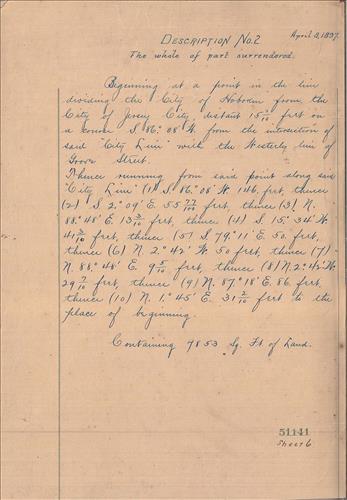 April 3, 1897.
Description No. 2
The whole of part surrendered.
Beginning at a point in the line
dividing the City of Hoboken from the
City of Jersey City, distant 15 5/10 feet on
a course S 86° 08' W. from the intersection of
said "City Line" with the Westerly line of
Grove Street.
Thence running from said point along said
"City Line" (1) S 86° 08' W. 146 feet, thence
(2) S. 2° 09' E. 55 77/100 feet, thence (3) N.
88° 48' E. 13 3/10 feet, thence (4) S. 15° 34' W.
41 3/10 feet, thence (5) S 79° 11' E. 50 feet,
thence (6) N. 2° 42' W. 50 feet, thence (7)
N. 88° 48' E. 9 5/10 feet, thence (8) N. 2° 42' W.
29 7/10 feet, thence (9) N. 87° 18' E. 86 feet,
thence (10) N. 1° 45' E. 31 2/10 feet to the
place of beginning.
Containing 9853 Sq. Ft. of Land.
51141
Sheet 6